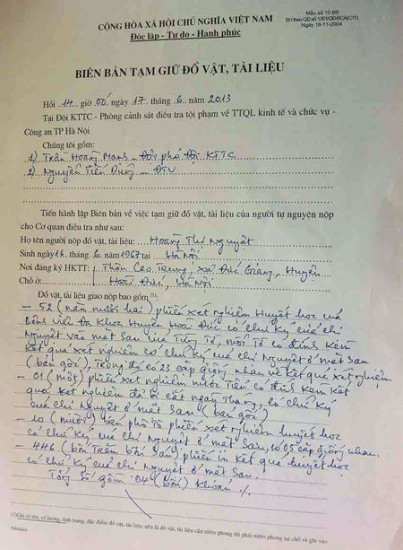 CỘNG HÒA XÃ HỘI CHỦ NGHĨA VIỆT NAM
Độc lập - Tự do - Hạnh phúc
Mẫu số 10 BB
Ngày 18-11-2004
BIÊN BẢN TẠM GIỮ ĐỒ VẬT, TÀI LIỆU
Hồi 14 giờ 00 ngày 17 tháng 6 năm 2013
Tại Đội KTTC - Phòng cảnh sát điều tra tội phạm về TTQL kinh tế và chức vụ -
Công an TP Hà Nội
Chúng tôi gồm:
1) Trần Hoàng - Đội phó Đội KTTC
2) Nguyễn Tiến Dũng - ĐTV
Tiến hành lập Biên bản về việc tạm giữ đồ vật, tài liệu của người tự nguyện nộp
cho Cơ quan điều tra như sau:
Họ tên người nộp đồ vật, tài liệu: Hoàng Thị Nguyệt
Sinh ngày 16 tháng 6 năm 1967 tại Hà Nội
Nơi đăng ký HKTT: Thôn Cao Trung, xã Đức Giang, Huyện
Chỗ ở: Hoài Đức, Hà Nội
Đồ vật, tài liệu giao nộp bao gồm (1):
- 52 (năm mươi hai) phiếu xét nghiệm Huyết học của
bệnh viện Đa Khoa Huyện Hoài Đức có chữ ký của chị
Nguyệt vào mặt sau của từng tờ, mỗi tờ có đính kèm
kết quả xét nghiệm có chữ ký của chị Nguyệt ở mặt sau
(bản gốc), Trong đó có 23 cặp giống nhau về kết quả xét nghiệm
- 01 (một) phiếu xét nghiệm nước Tiểu có đính kèm kết
quả xét nghiệm đề bị cắt ngày tháng, có chữ ký
của chị Nguyệt ở mặt sau (bản gốc)
- 10 (mười) bản phô tô phiếu xét nghiệm huyết học
có chữ ký của chị Nguyệt ở mặt sau, có 05 cặp giống nhau.
- 446 (bốn trăm bốn sáu) phiếu in kết quả huyết học
có chữ ký của chị Nguyệt ở mặt sau.
Tổng số gồm 04 (bốn) khoản ./.